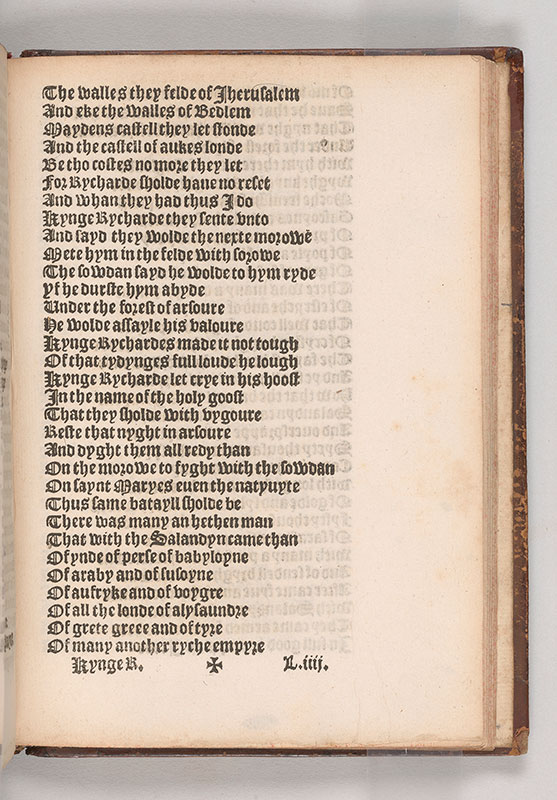 The walles they felde of Jherusalem
And eke the walles of Bedlem
Maydens castell they let stonde
And the castell of aukes londe
Be tho costes no more they let
For Rycharde sholde haue no reset
And whan they had thus J do
Kynge Rycharde they sente vnto
And sayd they wolde the nexte morowē
Mete hym in the felde with sorowe
The sowdan sayd he wolde to hym ryde
Yf he durste hym abyde
Under the forest of arsoure
He wolde assayle his valoure
Kynge Rychardes made it not tough
Of that tydynges full loude he lough
Kynge Rycharde let crye in his hoost
Jn the name of the holy goost
That they sholde with vygoure
Reste that nyght in arsoure
And dyght them all redy than
On the morowe to fyght with the sowdan
On saynt Maryes euen the natyuyte
Thus same batayll sholde be
There was many an hethen man
That with the Salandyn came than
Of ynde of perse of babyloyne
Of araby and of susoyne
Of aufryke and of voygre
Of all the londe of alysaundre
Of grete grece and of tyre
Of many another ryche empyre
Kynge R. ✠ L.iiij.